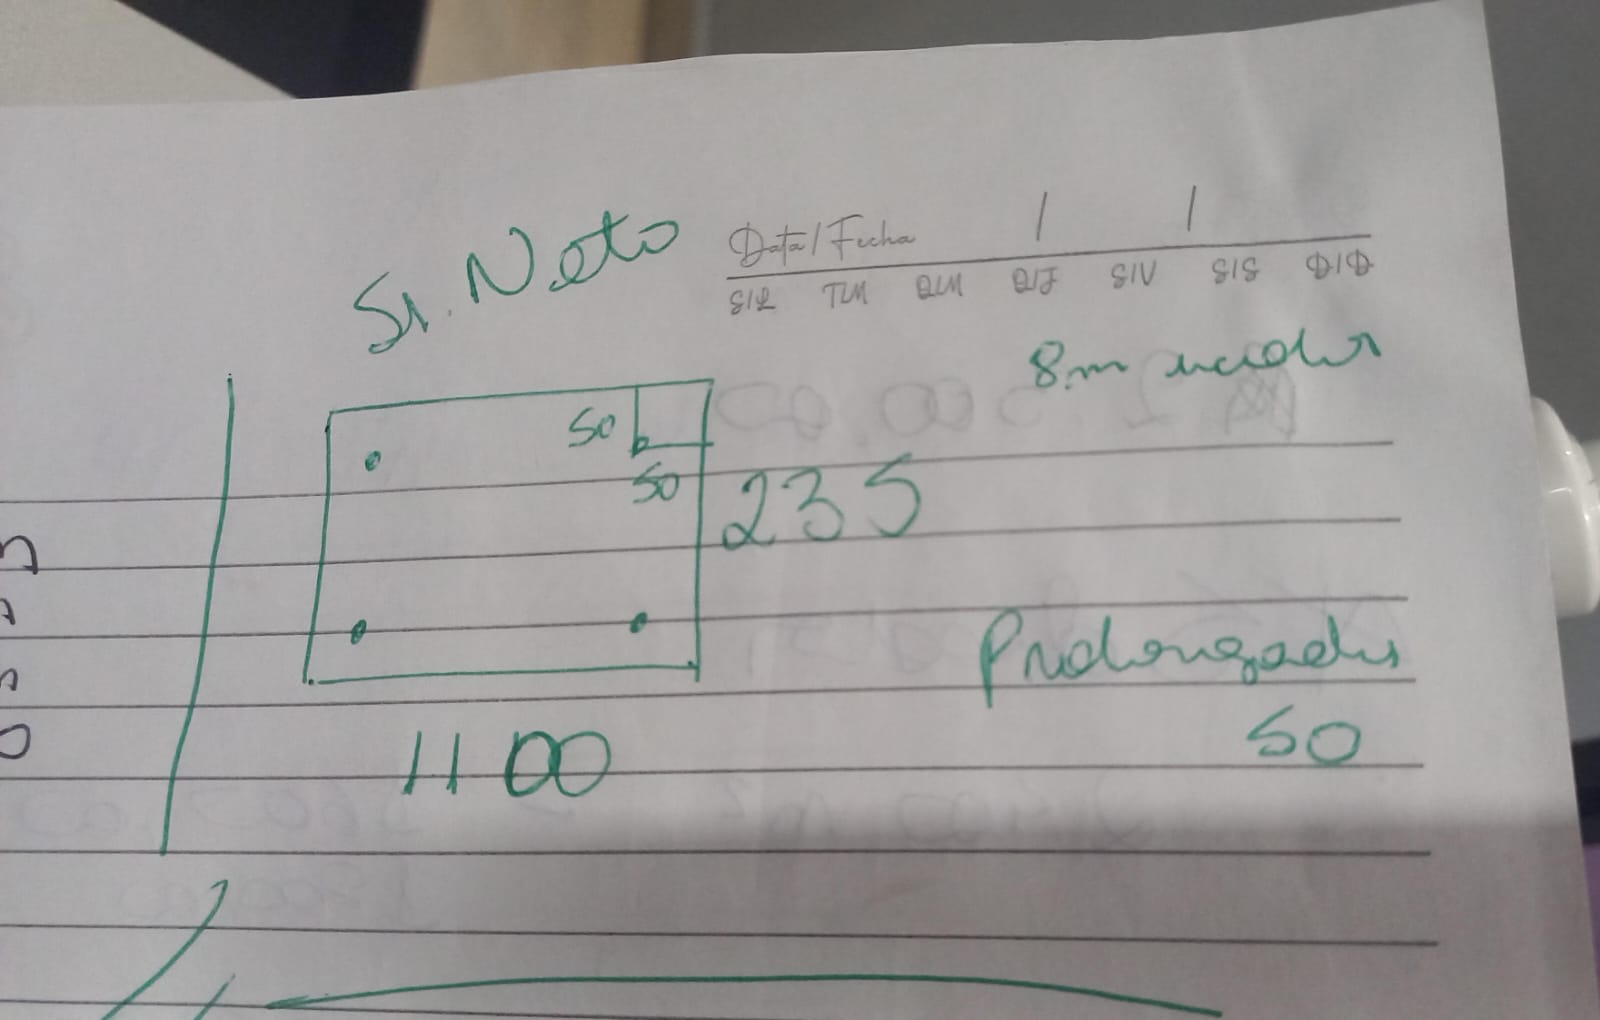 Sr. Neto
Data/Fecha / /
S/L T/M Q/M Q/J S/V S/S D/D
8m incolor
50
50
235
Prolongador
50
1100